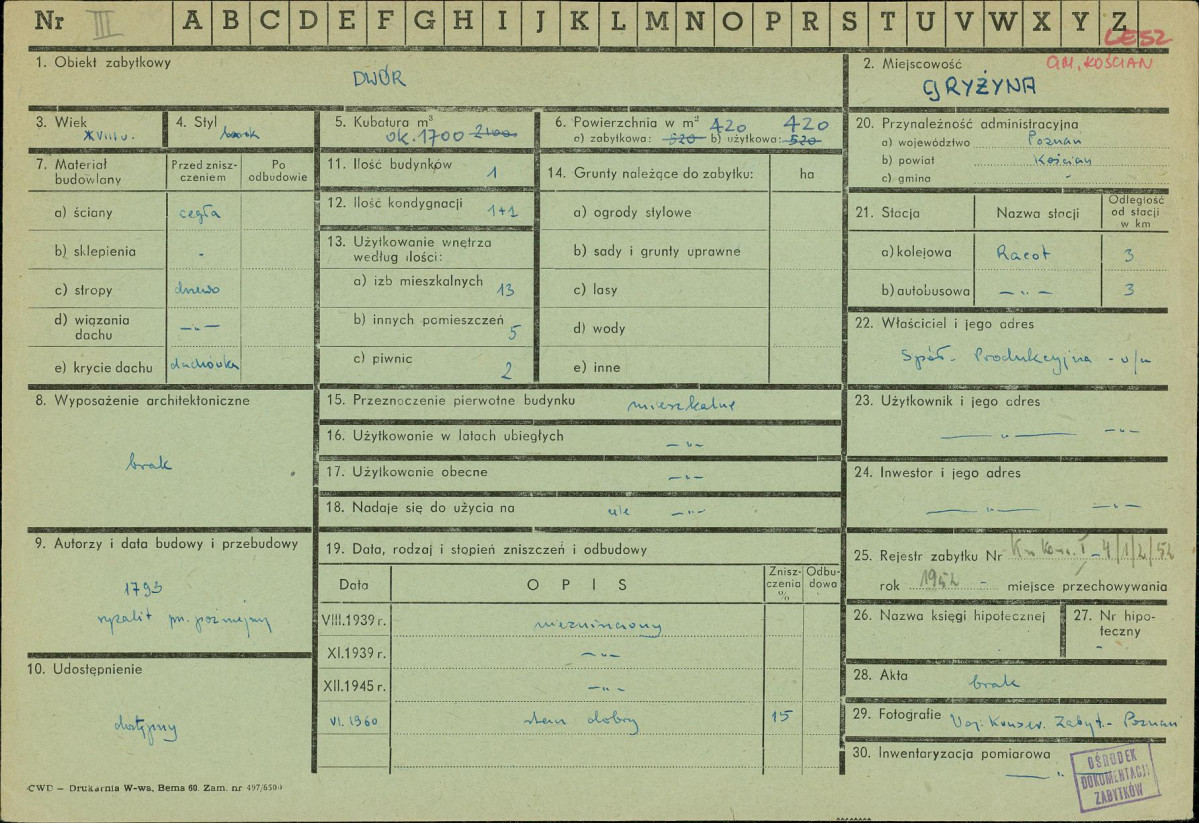 Nr III A B C D E F G H I J K L M N O P R S T U V W X Y Z
LESZ
GM. KOŚCIAN
1. Obiekt zabytkowy
DWÓR
2. Miejscowość
GRYŻYNA
3. Wiek
XVIII w.
4. Styl
barok
5. Kubatura m³
ok. 1700 2100
6. Powierzchnia w m² 420 420
a) zabytkowa: 520 b) użytkowa: 520
20. Przynależność administracyjna
a) województwo Poznań
b) powiat Kościan
c) gmina -
7. Materiał budowlany
Przed zniszczeniem
Po odbudowie
a) ściany cegła
b) sklepienia -
c) stropy drewo
d) wiązania dachu -"-
e) krycie dachu dachówka
11. Ilość budynków 1
12. Ilość kondygnacji 1+1
13. Użytkowanie wnętrza według ilości:
a) izb mieszkalnych 13
b) innych pomieszczeń 5
c) piwnic 2
14. Grunty należące do zabytku: ha
a) ogrody stylowe
b) sady i grunty uprawne
c) lasy
d) wody
e) inne
21. Stacja Nazwa stacji Odległość od stacji w km
a) kolejowa Racot 3
b) autobusowa -"- 3
22. Właściciel i jego adres
Spół. Produkcyjna - w/m
8. Wyposażenie architektoniczne
brak
15. Przeznaczenie pierwotne budynku mieszkalne
16. Użytkowanie w latach ubiegłych -"-
17. Użytkowanie obecne -"-
18. Nadaje się do użycia na -"-
23. Użytkownik i jego adres
-"- -"-
24. Inwestor i jego adres
-"- -"-
9. Autorzy i data budowy i przebudowy
1793
ryzalit pn. późniejszy
10. Udostępnienie
dostępny
19. Data, rodzaj i stopień zniszczeń i odbudowy
Data OPIS Zniszczenia % Odbudowa
VIII.1939 r. niezniszczony
XI.1939 r. -"-
XII.1945 r. -"-
VI. 1960 stan dobry 15
25. Rejestr zabytku Nr I-4/1/2/52
rok 1952 - miejsce przechowywania
26. Nazwa księgi hipotecznej
27. Nr hipoteczny
-
28. Akta brak
29. Fotografie Woj. Konserw. Zabyt. - Poznań
30. Inwentaryzacja pomiarowa
-"-
OŚRODEK
DOKUMENTACJI
ZABYTKÓW
CWD — Drukarnia W-wa, Bema 60. Zam. nr 497/6500